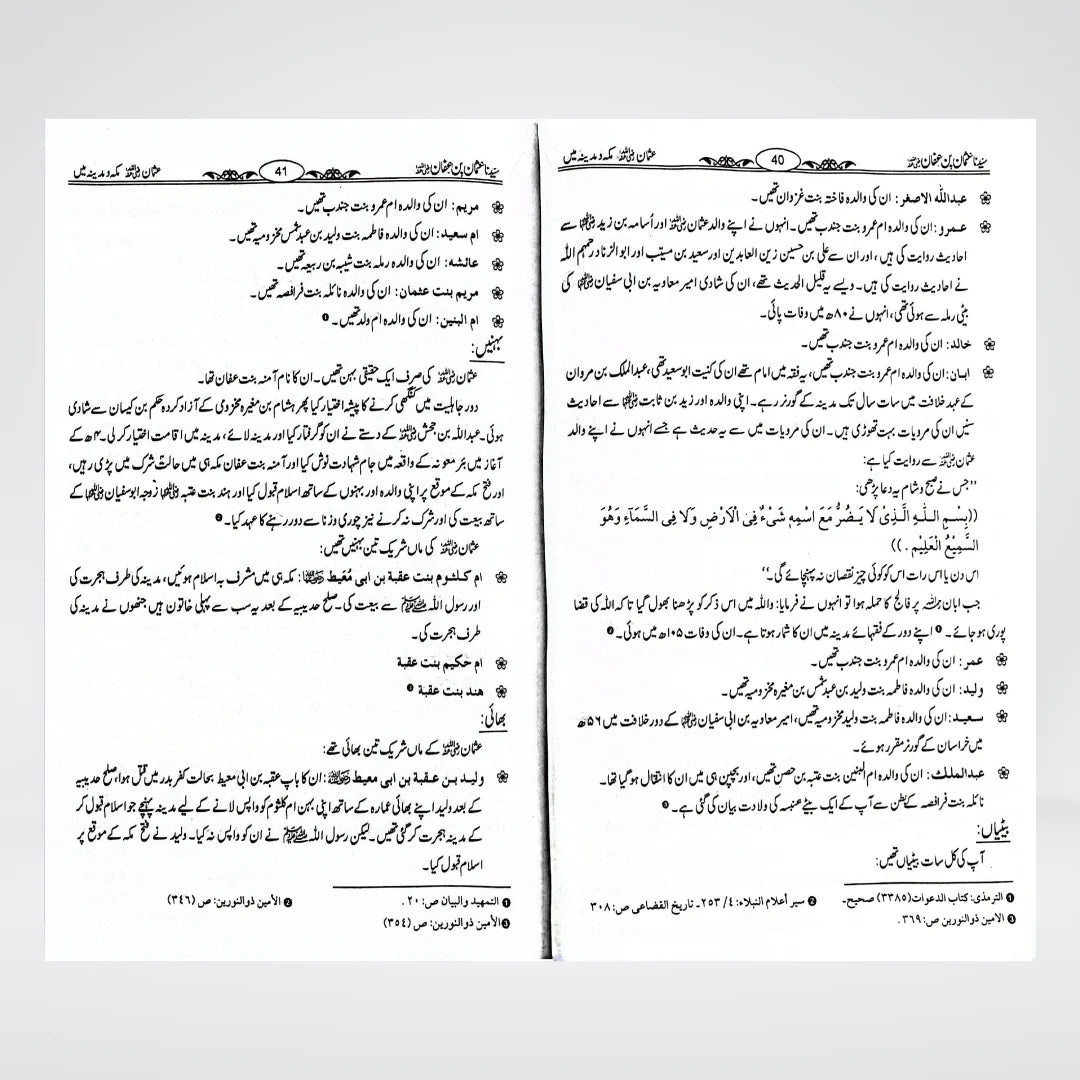 سیدنا عثمان بن عفان رضی اللہ عنہ 40 عثمان رضی اللہ عنہ مکہ و مدینہ میں
عبداللہ الاصغر: ان کی والدہ فاختہ بنت غزوان تھیں۔
عمرو: ان کی والدہ ام عمرو بنت جندب تھیں۔ انہوں نے اپنے والد عثمان رضی اللہ عنہ اور أسامہ بن زید رضی اللہ عنہما سے
احادیث روایت کی ہیں، اور ان سے علی بن حسین زین العابدین اور سعید بن مسیّب اور ابو الزناد رحمہم اللہ
نے احادیث روایت کی ہیں۔ ویسے یہ قلیل الحدیث تھے، ان کی شادی امیر معاویہ بن ابی سفیان رضی اللہ عنہما کی
بیٹی رملہ سے ہوئی تھی، انہوں نے ۸۰ھ میں وفات پائی۔
خالد: ان کی والدہ ام عمرو بنت جندب تھیں۔
ابان: ان کی والدہ ام عمرو بنت جندب تھیں، یہ فقہ میں امام تھے ان کی کنیت ابو سعید تھی، عبدالملک بن مروان
کے عہد خلافت میں سات سال تک مدینہ کے گورنر رہے۔ اپنی والدہ اور زید بن ثابت رضی اللہ عنہما سے احادیث
سنیں ان کی مرویات بہت تھوڑی ہیں۔ ان کی مرویات میں سے یہ حدیث ہے جسے انہوں نے اپنے والد
عثمان رضی اللہ عنہ سے روایت کیا ہے:
’’جس نے صبح و شام یہ دعا پڑھی:
((بِسْمِ اللّٰهِ الَّذِیْ لَا یَضُرُّ مَعَ اسْمِهٖ شَیْءٌ فِی الْاَرْضِ وَلَا فِی السَّمَآءِ وَهُوَ
السَّمِیْعُ الْعَلِیْمُ .))
اس دن یا اس رات اس کو کوئی چیز نقصان نہ پہنچائے گی۔‘‘
جب ابان رحمہ اللہ پر فالج کا حملہ ہوا تو انہوں نے فرمایا: واللہ میں اس ذکر کو پڑھنا بھول گیا تاکہ اللہ کی قضا
پوری ہو جائے۔ ❶ اپنے دور کے فقہائے مدینہ میں ان کا شمار ہوتا ہے۔ ان کی وفات ۱۰۵ھ میں ہوئی۔ ❷
عمر: ان کی والدہ ام عمرو بنت جندب تھیں۔
ولید: ان کی والدہ فاطمہ بنت ولید بن عبد شمس بن مغیرہ مخزومیہ تھیں۔
سعید: ان کی والدہ فاطمہ بنت ولید مخزومیہ تھیں، امیر معاویہ بن ابی سفیان رضی اللہ عنہما کے دور خلافت میں ۵۶ھ
میں خراسان کے گورنر مقرر ہوئے۔
عبدالملک: ان کی والدہ ام البنین بنت عتبہ بن حصن تھیں، اور بچپن ہی میں ان کا انتقال ہو گیا تھا۔
نائلہ بنت فرافصہ کے بطن سے آپ کے ایک بیٹے عنبسہ کی ولادت بیان کی گئی ہے۔ ❸
بیٹیاں:
آپ کی کل سات بیٹیاں تھیں:
❶ الترمذی: کتاب الدعوات (۳۳۸۵) صحیح۔ ❷ سیر أعلام النبلاء: ۴/ ۲۵۳۔ تاریخ القضاعی ص: ۳۰۸
❸ الامین ذوالنورین ص: ۳۶۹.
سیدنا عثمان بن عفان رضی اللہ عنہ 41 عثمان رضی اللہ عنہ مکہ و مدینہ میں
مریم: ان کی والدہ ام عمرو بنت جندب تھیں۔
ام سعید: ان کی والدہ فاطمہ بنت ولید بن عبد شمس مخزومیہ تھیں۔
عائشہ: ان کی والدہ رملہ بنت شیبہ بن ربیعہ تھیں۔
مریم بنت عثمان: ان کی والدہ نائلہ بنت فرافصہ تھیں۔
ام البنین: ان کی والدہ ام ولد تھیں۔ ❶
بہنیں:
عثمان رضی اللہ عنہ کی صرف ایک حقیقی بہن تھیں۔ ان کا نام آمنہ بنت عفان تھا۔
دور جاہلیت میں کنگھی کرنے کا پیشہ اختیار کیا پھر ہشام بن مغیرہ مخزومی کے آزاد کردہ حکم بن کیسان سے شادی
ہوئی۔ عبداللہ بن جحش رضی اللہ عنہ کے دستے نے ان کو گرفتار کیا اور مدینہ لائے، مدینہ میں اقامت اختیار کر لی۔ ۴ھ کے
آغاز میں بئر معونہ کے واقعہ میں جام شہادت نوش کیا اور آمنہ بنت عفان مکہ ہی میں حالت شرک میں پڑی رہیں،
اور فتح مکہ کے موقع پر اپنی والدہ اور بہنوں کے ساتھ اسلام قبول کیا اور ہند بنت عتبہ رضی اللہ عنہا زوجہ ابو سفیان رضی اللہ عنہ کے
ساتھ بیعت کی اور شرک نہ کرنے نیز چوری و زنا سے دور رہنے کا عہد کیا۔ ❷
عثمان رضی اللہ عنہ کی ماں شریک تین بہنیں تھیں:
ام کلثوم بنت عقبة بن ابی مُعَیط رضی اللہ عنہا: مکہ ہی میں مشرف بہ اسلام ہوئیں، مدینہ کی طرف ہجرت کی
اور رسول اللہ ﷺ سے بیعت کی۔ صلح حدیبیہ کے بعد یہ سب سے پہلی خاتون ہیں جنھوں نے مدینہ کی
طرف ہجرت کی۔
ام حکیم بنت عقبة
هند بنت عقبة ❸
بھائی:
عثمان رضی اللہ عنہ کے ماں شریک تین بھائی تھے:
ولید بن عقبة بن ابی معیط رضی اللہ عنہ: ان کا باپ عقبہ بن ابی معیط بحالت کفر بدر میں قتل ہوا، صلح حدیبیہ
کے بعد ولید اپنے بھائی عمارہ کے ساتھ اپنی بہن ام کلثوم کو واپس لانے کے لیے مدینہ پہنچے جو اسلام قبول کر
کے مدینہ ہجرت کر گئی تھیں۔ لیکن رسول اللہ ﷺ نے ان کو واپس نہ کیا۔ ولید نے فتح مکہ کے موقع پر
اسلام قبول کیا۔
❶ التمهید والبیان ص: ۲۰ . ❷ الأمین ذوالنورین: ص (۳۴۶)
❸ الأمین ذوالنورین: ص (۳۵۴)